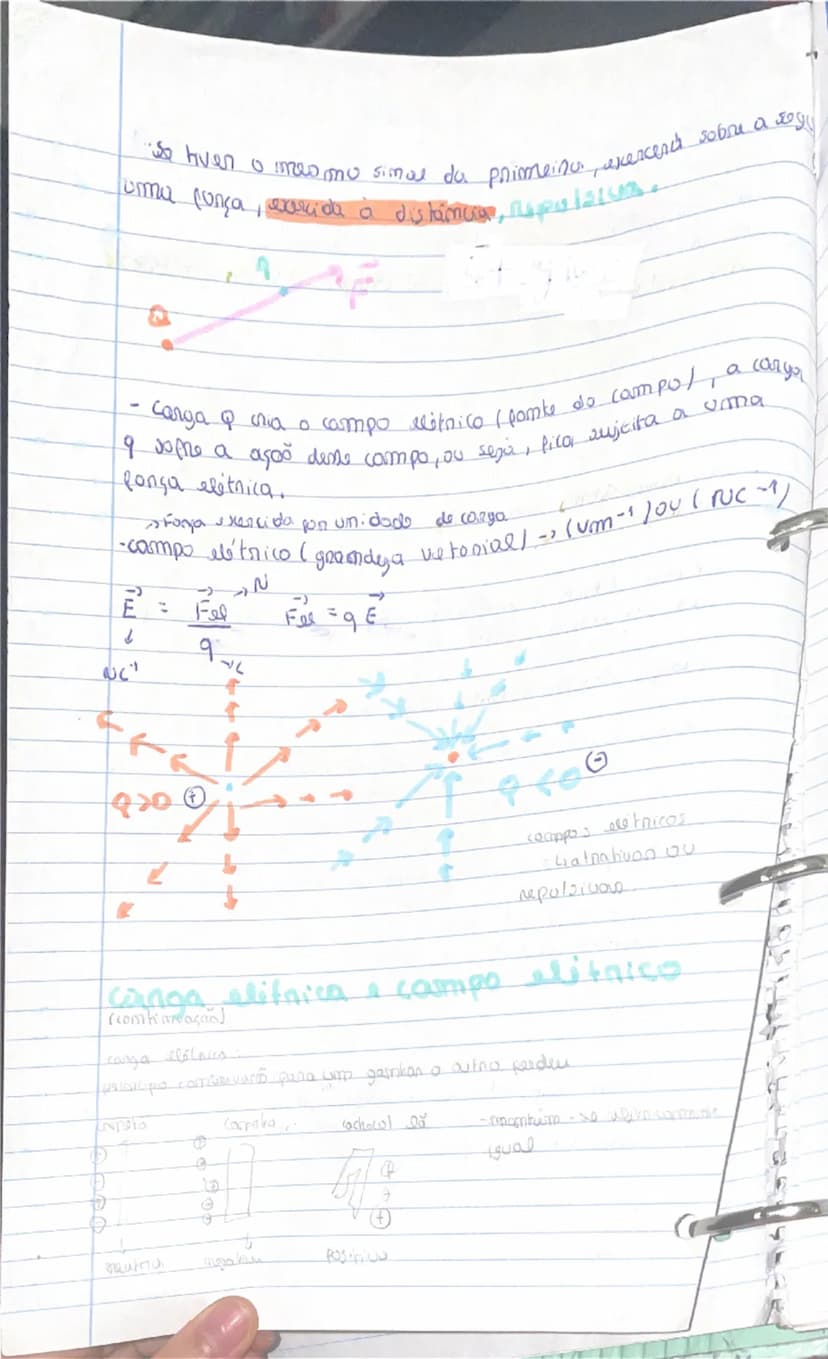 se tiver o mesmo sinal da primeira, exercerá sobre a segu
uma força, exercida à distância, repulsiva.
q
F
Q
- Carga Q cria o campo elétrico (fonte do campo), a carga
q sofre a ação deste campo, ou seja, fica sujeita a uma
força elétrica.
→ força exercida por unidade de carga
- campo elétrico (grandeza vetorial) → (Vm⁻¹) ou (NC⁻¹)
E⃗ = F⃗el → N / q → C F⃗el = q E⃗
↓
NC⁻¹
Q>0 (+)
Q<0 (-)
campos elétricos
atrativos ou
repulsivos
carga elétrica e campo elétrico
(continuação)
carga elétrica:
para um ganhar o outro perdeu
caneta cachecol lã - mantém-se eletricamente
igual
neutra negativa positivo